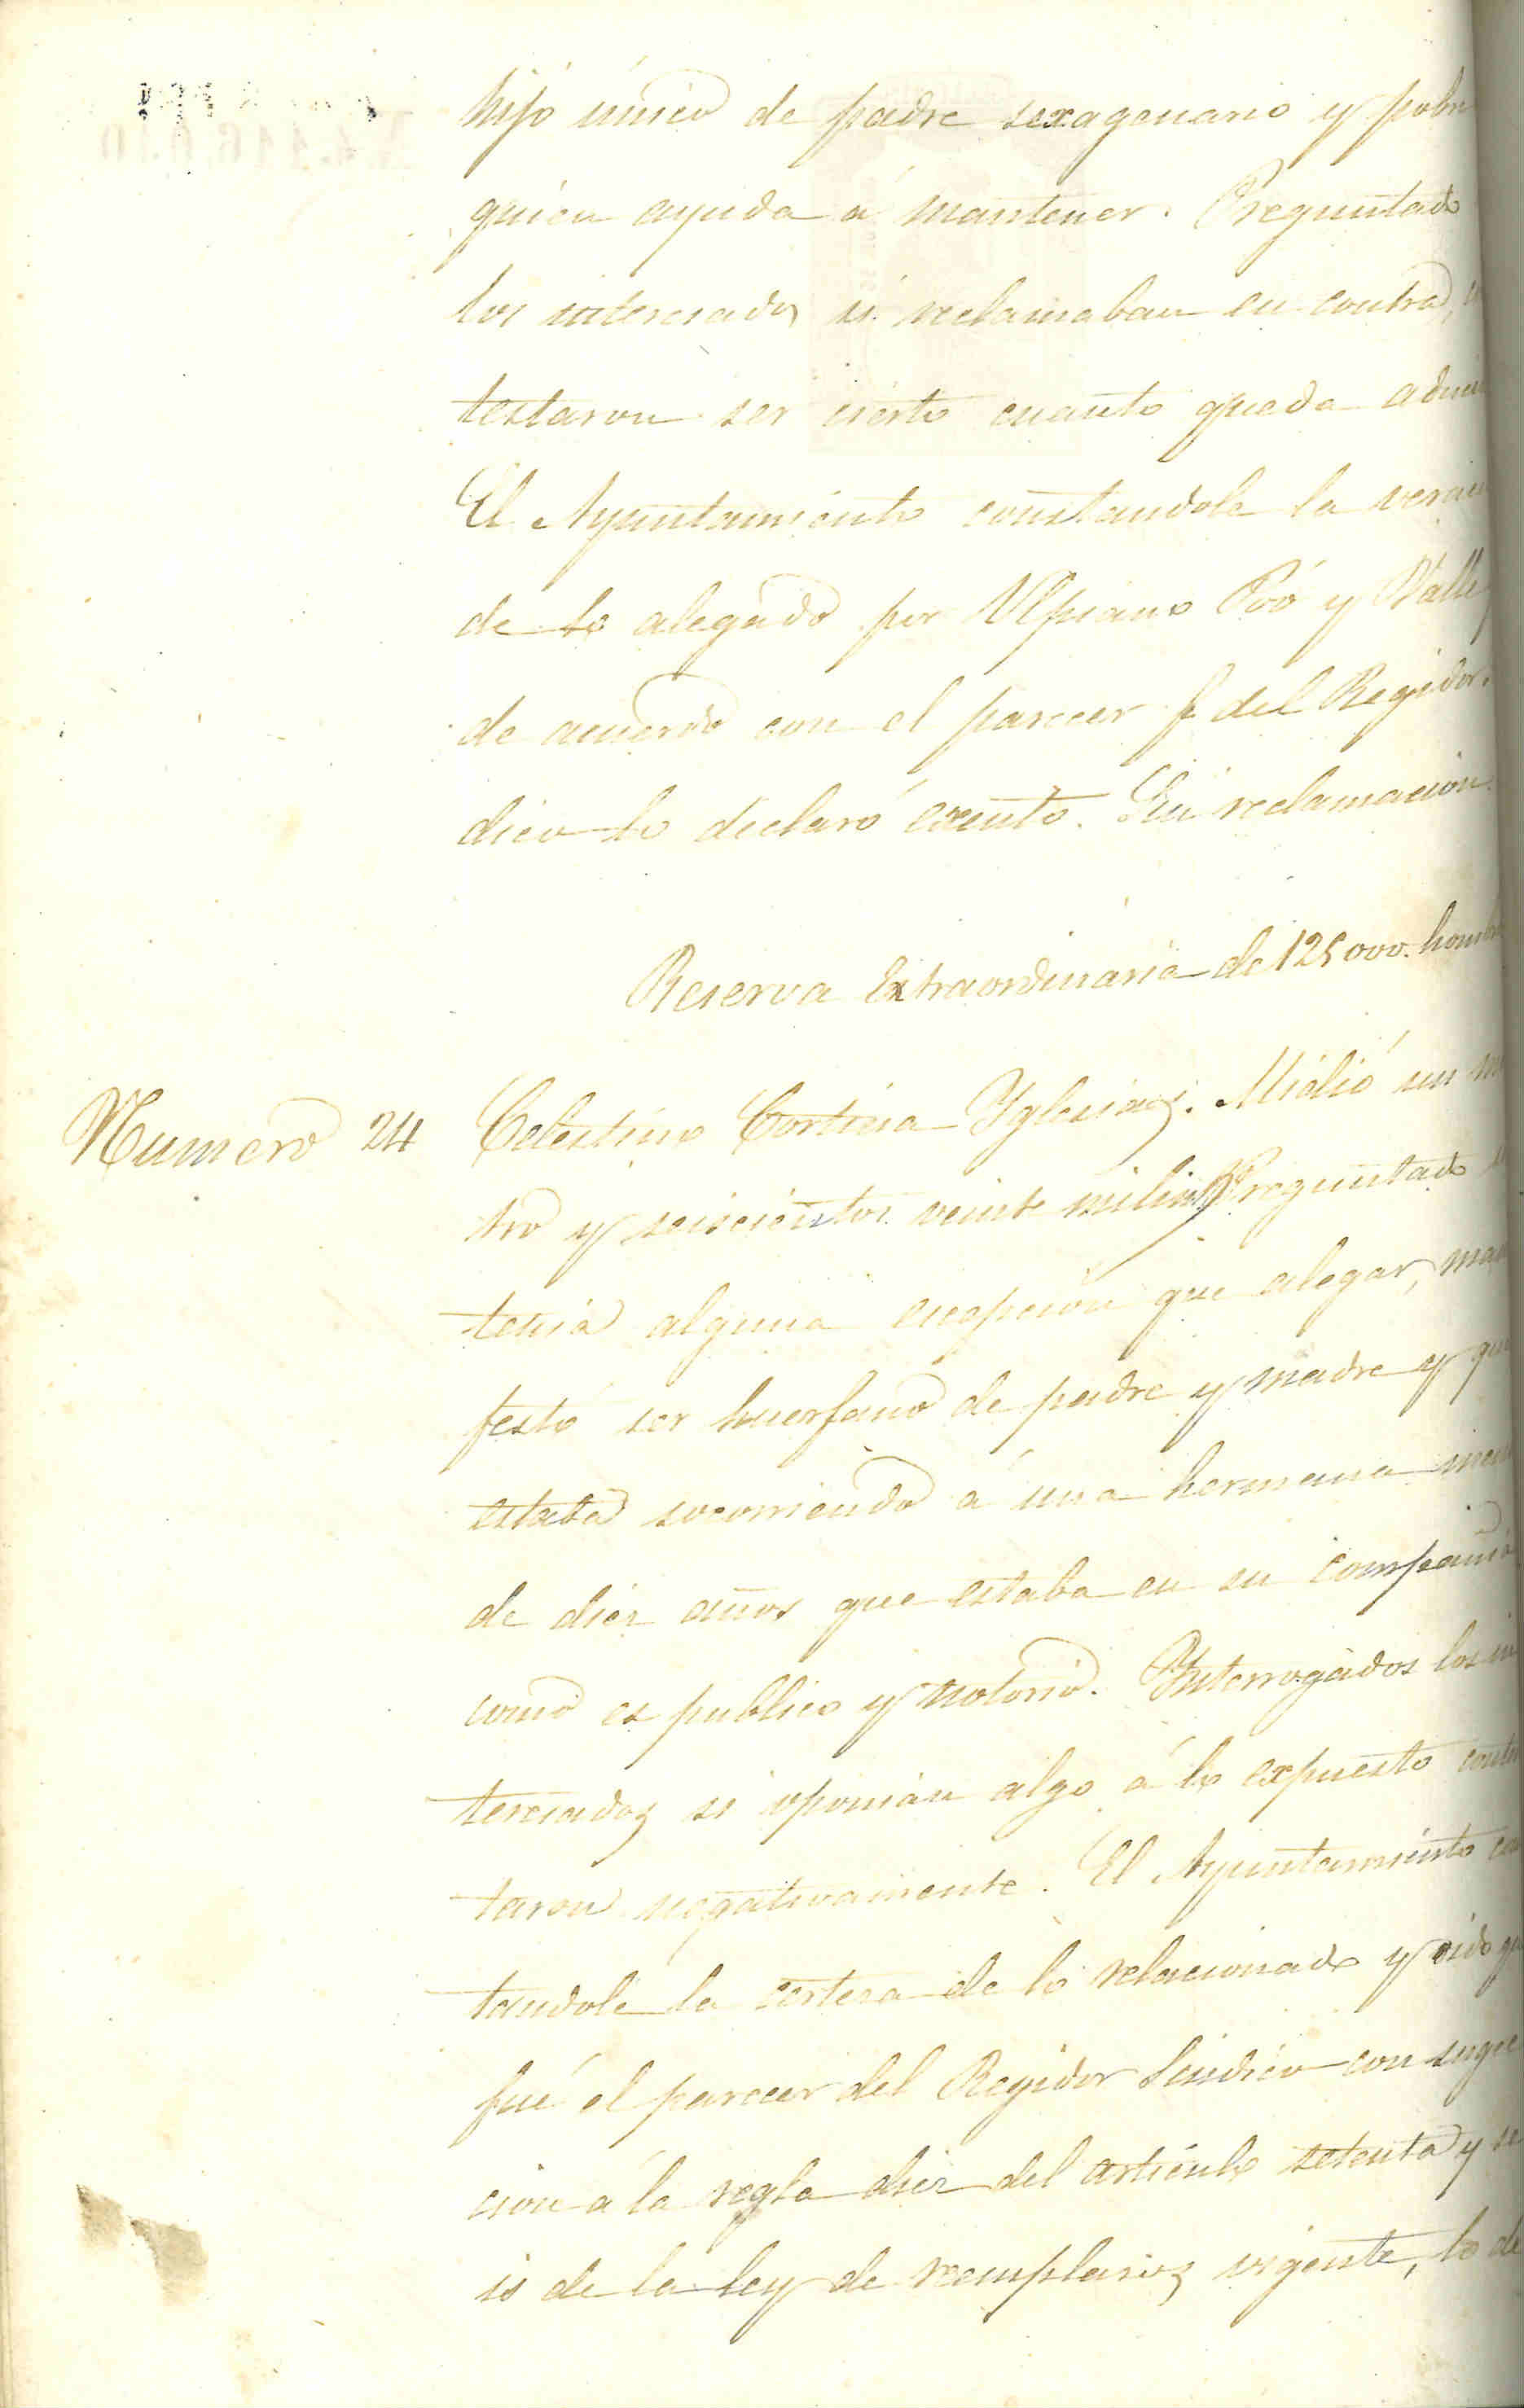 hijo único de padre sexagenario y pobre
quien ayuda á mantener. Preguntado
los interesados si reclamaban en contra,
testaron ser cierto cuanto queda aduci
El Ayuntamiento constandole la verac
de lo alegado por Ulpiano Poó y Valle
de acuerdo con el parecer del Regidor
dico lo declaró exento. Sin reclamacion.
Reserva Extraordinaria de 125000. hombre
Numero 24 Celestino Cortina Yglesias. Midió un me
tro y seiscientos veinte milim Preguntado
tenia alguna escepcion que alegar, mani
festó ser huerfano de padre y madre y que
estaba socorriendo á una hermana menor
de diez años que estaba en su compañia
como es publico y notorio. Ynterrogados los in
teresados si oponian algo á lo expuesto contes
taron negativamente. El Ayuntamiento cons
tandole la certeza de lo relacionado y oido que
fué el parecer del Regidor Sindico con suge
cion á la regla diez del articulo setenta y se
is de la ley de reemplazos vigente, lo de